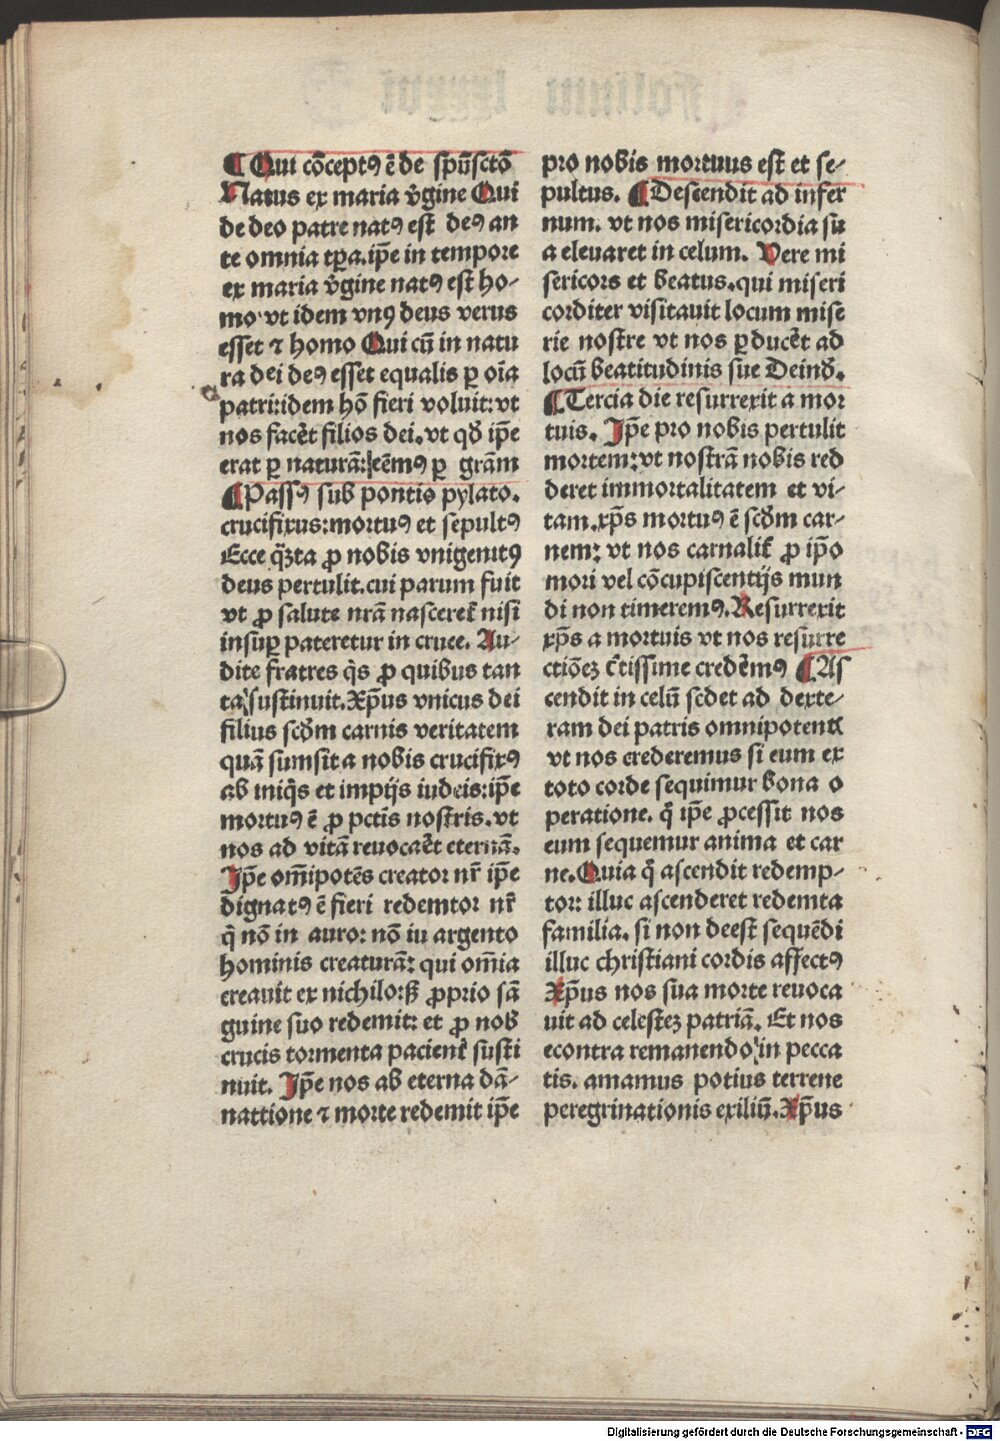 ¶ Qui cōceptꝰ ē de spūsctō
Natus ex maria v̄gine Qui
de deo patre natꝰ est deꝰ an
te omnia tp̄a. ip̄e in tempore
ex maria v̄gine natꝰ est ho-
mo vt idem vnꝰ deus verus
esset ⁊ homo Qui cū in natu
ra dei deꝰ esset equalis ꝑ oīa
patri: idem hō fieri voluit: vt
nos facēt filios dei. vt qď ip̄e
erat ꝑ naturā: eēmꝰ ꝑ grām
¶ Passꝰ sub pontio pylato.
crucifixus: mortuꝰ et sepultꝰ
Ecce q̄ꝫta ꝓ nobis vnigenitꝰ
deus pertulit. cui parum fuit
vt ꝓ salute nrā nasceret᷑ nisi
insuꝑ pateretur in cruce. Au-
dite fratres q̄s ꝓ quibus tan
ta sustinuit. Xp̄us vnicus dei
filius scďm carnis veritatem
quā sumsit a nobis crucifixꝰ
ab iniq̄s et impijs iudeis: ip̄e
mortuꝰ ē ꝓ pctīs nostris. vt
nos ad vitā reuocaēt eternā.
Ip̄e om̄ipotēs creator nr̄ ip̄e
dignatꝰ ē fieri redemtor nr̄
q̄ nō in auro: nō iu argento
hominis creaturā: qui om̄ia
creauit ex nichilo: sꝫ ꝓprio sā
guine suo redemit: et ꝓ nob̄
crucis tormenta pacient᷑ susti
nuit. Ip̄e nos ab eterna dā-
nattione ⁊ morte redemit ip̄e
pro nobis mortuus est et se-
pultus. ¶ Descendit ad infer
num. vt nos misericordia su
a eleuaret in celum. Vere mi
sericors et beatus. qui miseri
corditer visitauit locum mise
rie nostre vt nos ꝑducēt ad
locū beatitudinis sue Deinď.
¶ Tercia die resurrexit a mor
tuis. Ip̄e pro nobis pertulit
mortem: vt nostrā nobis red
deret immortalitatem et vi-
tam. xp̄s mortuꝰ ē scďm car-
nem: vt nos carnalit᷑ ꝓ ip̄o
mori vel cōcupiscentijs mun
di non timeremꝰ. Resurrexit
xp̄s a mortuis vt nos resurre
ctiōeꝫ c̄tissime credēmꝰ ¶ As
cendit in celū sedet ad dexte-
ram dei patris omnipotentꝭ
vt nos crederemus si eum ex
toto corde sequimur bona o
peratione. q̄ ip̄e ꝓcessit nos
eum sequemur anima et car
ne. Quia q̄ ascendit redemp-
tor: illuc ascenderet redemta
familia. si non deest sequēdi
illuc christiani cordis affectꝰ
Xp̄us nos sua morte reuoca
uit ad celesteꝫ patriā. Et nos
econtra remanendo in pecca
tis. amamus potius terrene
peregrinationis exiliū. Xp̄us
Digitalisierung gefördert durch die Deutsche Forschungsgemeinschaft - DFG